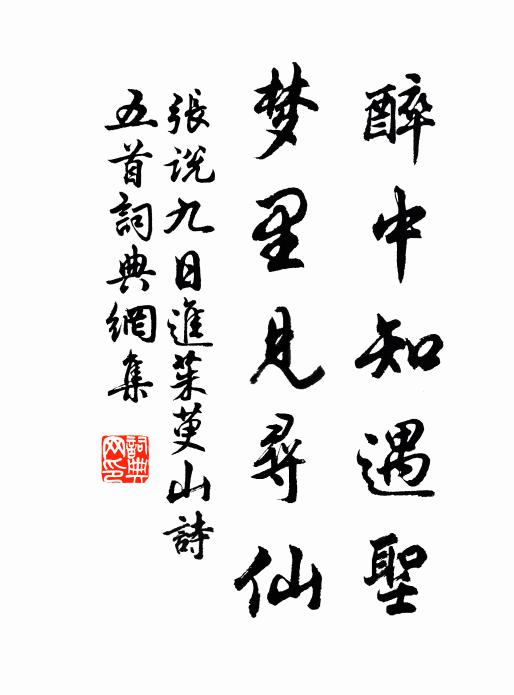 醉中知遇聖
梦里見尋仙
張说九日進茱萸山詩
五首詞典網集
詞典网印